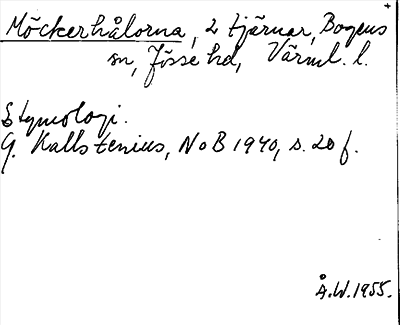 Möckerhålorna, 2 tjärnar, Bogens
sn, Jösse hd, Värml. l.
Etymologi.
G. Kallstenius, NoB 1940, s. 20 f.
Å.W. 1955.